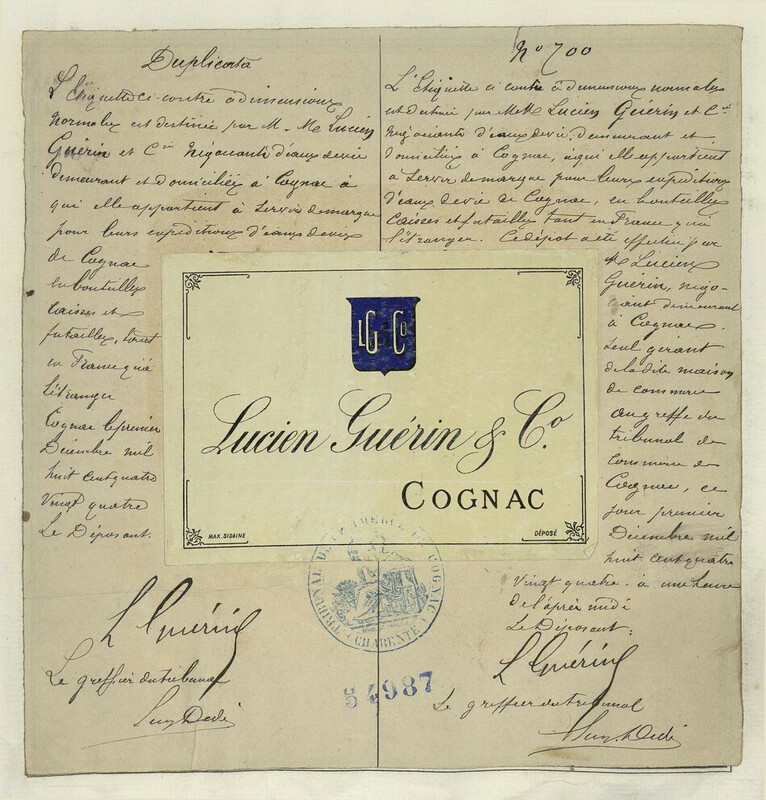 Duplicata
L'Etiquette ci contre à dimensions
normales est destinée par M. Me Lucien
Guérin et Cie Négociants d'eaux de vie
demeurant et domiciliés à Cognac à
qui elle appartient à servir de marque
pour leurs expéditions d'eaux de vie
de Cognac
en bouteilles
caisses et
futailles, tant
en France qu'à
l'étranger
Cognac le premier
Décembre mil
huit cent quatre
vingt quatre
Le Déposant.
L Guérin
Le greffier du tribunal
No 700
L'Etiquette ci contre à dimensions normales
est destinée par Lucien Guérin et Cie
Négociants d'eaux de vie, demeurant et
domiciliés à Cognac, à qui elle appartient
à servir de marque pour leurs expéditions
d'eaux de vie de Cognac, en bouteilles
caisses et futailles tant en France qu'à
l'étranger. Ce dépôt a été effectué par
Mr Lucien
Guérin, négo-
ciant demeurant
à Cognac.
Seul gérant
de la dite maison
de commerce
au greffe du
tribunal de
commerce de
Cognac, ce
jour premier
Décembre mil
huit cent quatre
vingt quatre. à une heure
de l'après midi
Le Déposant:
L Guérin
Le greffier du tribunal
LG & Co
Lucien Guérin & Co.
COGNAC
MAX. SIDAINE
DÉPOSÉ
TRIBUNAL DE COMMERCE DE COGNAC
(CHARENTE)
54987